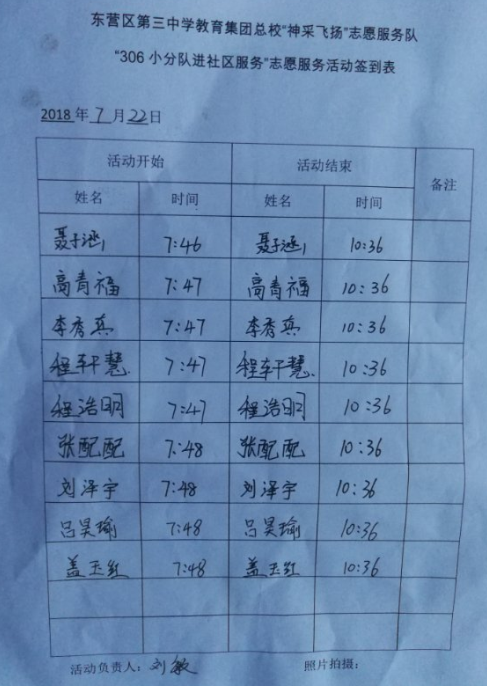 东营区第三中学教育集团总校“神采飞扬”志愿服务队
“306 小分队进社区服务”志愿服务活动签到表
2018 年 7 月 22 日
活动开始 活动结束 备注
姓名 时间 姓名 时间
聂子涵 7:46 聂子涵 10:36
高青福 7:47 高青福 10:36
李秀真 7:47 李秀真 10:36
程轩慧 7:47 程轩慧 10:36
程浩明 7:47 程浩明 10:36
张配配 7:48 张配配 10:36
刘泽宇 7:48 刘泽宇 10:36
吕昊瑜 7:48 吕昊瑜 10:36
盖玉红 7:48 盖玉红 10:36
活动负责人：刘敏 照片拍摄：